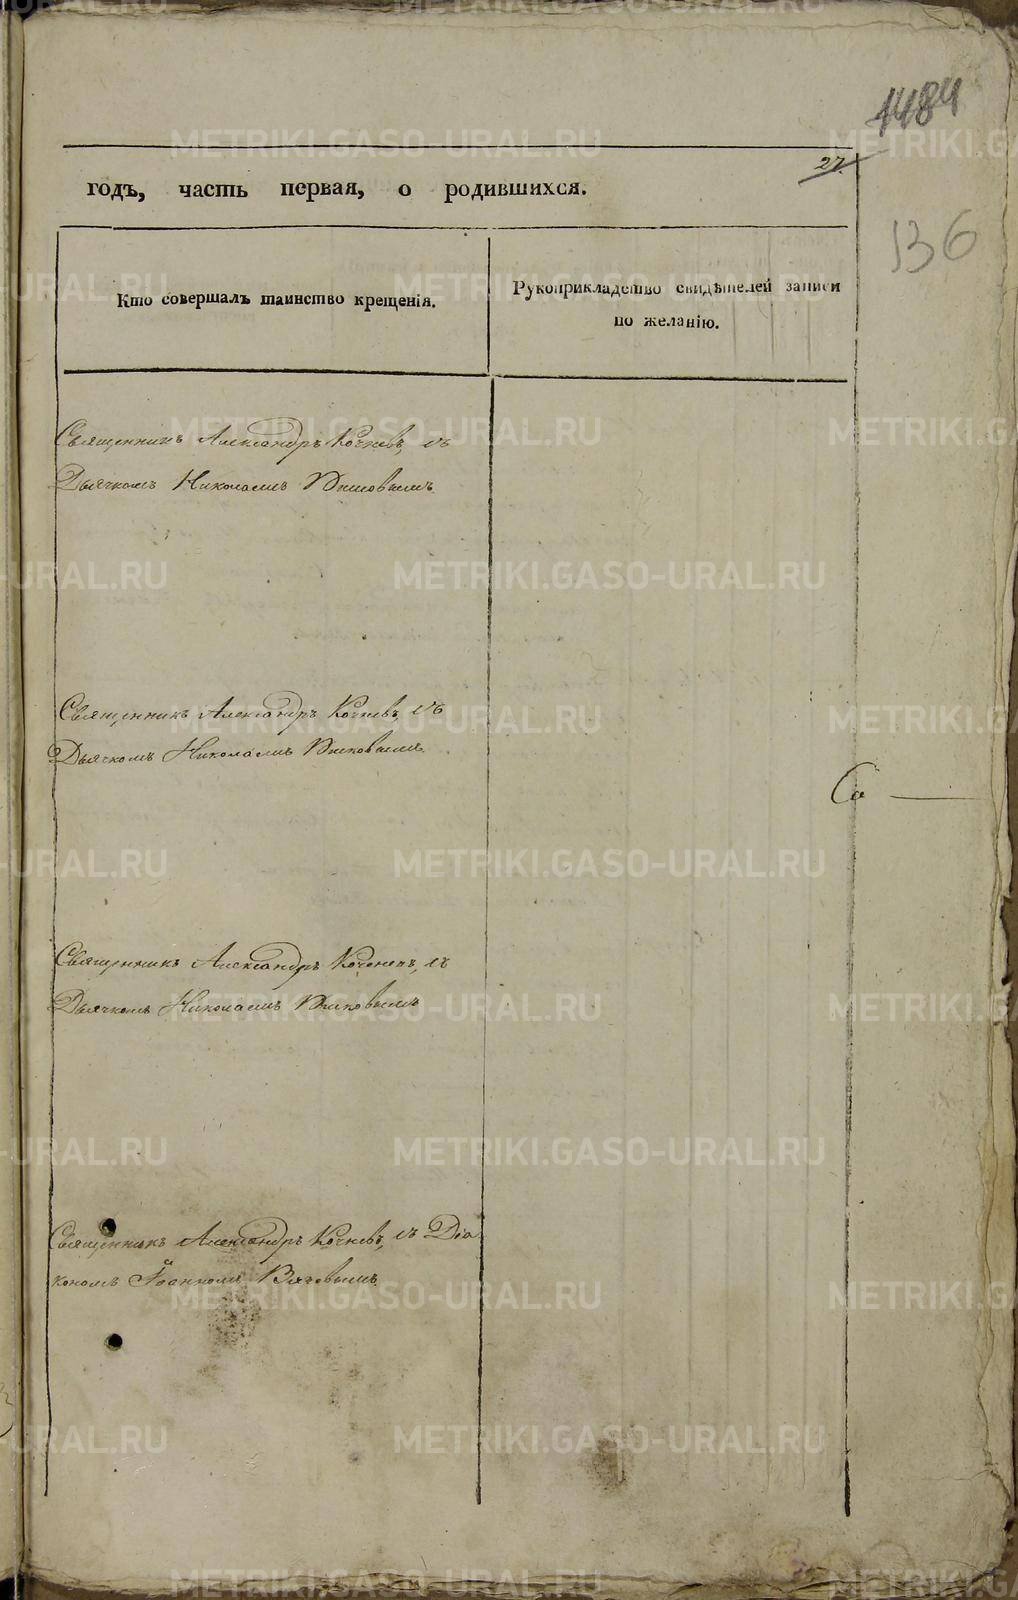 1484
27.
годъ, часть первая, о родившихся.
136
Кто совершалъ таинство крещенія.
Рукоприкладство свидѣтелей записи
по желанію.
Священникъ Александръ Кочневъ, съ
Дьячкомъ Николаемъ
Священникъ Александръ Кочневъ, съ
Дьячкомъ Николаемъ
Со
Священникъ Александръ съ
Дьячкомъ Николаемъ
Священникъ Александръ Кочневъ, съ Діа
кономъ Іоанномъ
METRIKI.GASO-URAL.RU